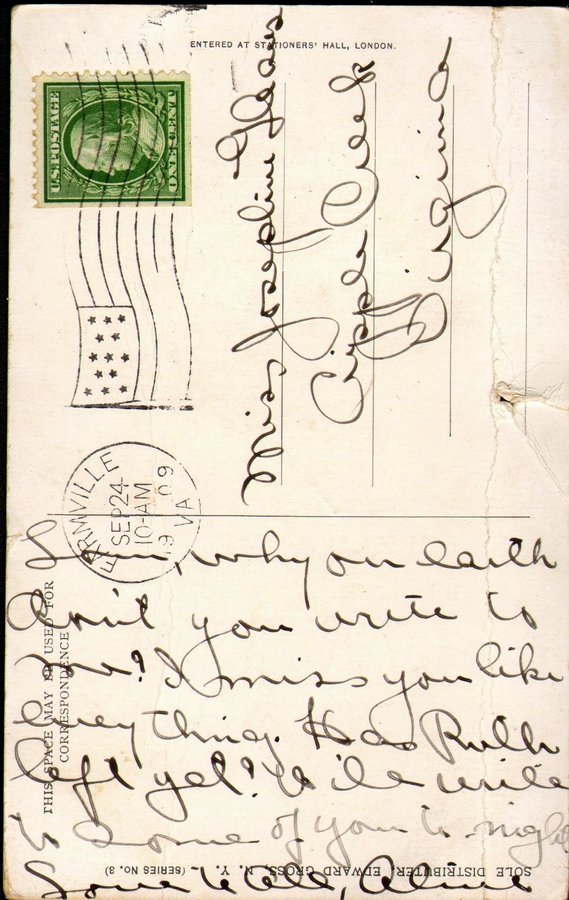 ENTERED AT STATIONERS' HALL, LONDON.
U.S. POSTAGE
ONE CENT
FARMVILLE
SEP 24
10-AM
1909
VA
Miss Josephine
Cripple Creek
Virginia
THIS SPACE MAY BE USED FOR
CORRESPONDENCE
why on earth
don't you write to
me? I miss you like
everything. Has Ruth
left yet? I'll write
to some of you to-night
Love to all,
SOLE DISTRIBUTER, EDWARD GROSS, N. Y. (SERIES No. 3)